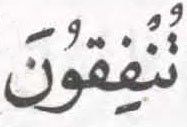 تُنْفِقُونَ